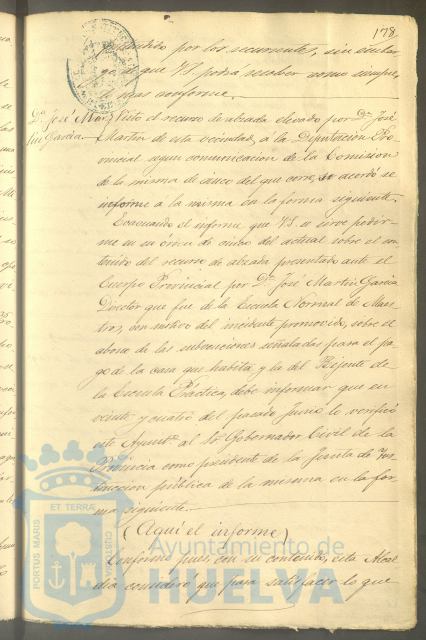 178
tendido por los recurrentes, sin embar-
go de que V.S. podrá acordar como siempre,
lo mas conforme.
Dn. José Mar- Visto el recurso de alzada elevado por Dn. José
tin Garcia. Martin de esta vecindad, á la Diputacion Pro-
vincial segun comunicacion de la Comision
de la misma de cinco del que corre, se acordó se
informe a la misma en la forma siguiente.
Evacuando el informe que V.S. se sirve pedir-
me en su órden de cinco del actual sobre el con-
tenido del recurso de alzada presentado ante el
Cuerpo Provincial por Dn. José Martin Garcia
Director que fue de la Escuela Normal de Maes-
tros, con motivo del incidente promovido, sobre el
abono de las subvenciones señaladas para el pa-
go de la casa que habita y la del Regente de
la Escuela Práctica, debe informar que en
veinte y cuatro del pasado Junio lo verificó
este Ayuntº. al Sr. Gobernador Civil de la
Provincia como presidente de la Junta de Ins-
truccion pública de la misma en la for-
ma siguiente.
(Aquí el informe)
Conforme pues, con su contenido, esta Alcal-
dia consideró que para satisfacer lo que
PORTUS MARIS
ET TERRÆ
CUSTODIA
Ayuntamiento de
HUELVA